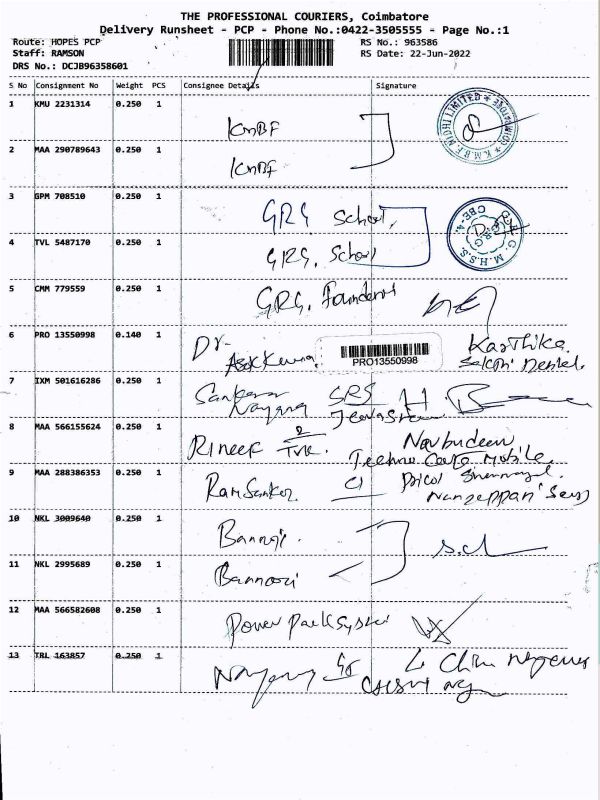 THE PROFESSIONAL COURIERS, Coimbatore
Delivery Runsheet - PCP - Phone No.:0422-3505555 - Page No.:1
Route: HOPES PCP RS No.: 963586
Staff: RAMSON RS Date: 22-Jun-2022
DRS No.: DCJB96358601
S No Consignment No Weight PCS Consignee Details Signature
1 KMU 2231314 0.250 1
KMBF
2 MAA 290789643 0.250 1
KMBF
3 GPM 708510 0.250 1
GRG School.
4 TVL 5487170 0.250 1
GRG. School
5 CMM 779559 0.250 1
GRG.
6 PRO 13550998 0.140 1
Dr- PRO13550998 Karthika.
Dental.
7 IXM 501616286 0.250 1
Sankara SRS
Nayana
8 MAA 566155624 0.250 1
Rineef Navbudeen
Techno Care Mobile.
9 MAA 288386353 0.250 1
Ram Sankar
10 NKL 3009640 0.250 1
Bannari. S.d
11 NKL 2995689 0.250 1
Bannari
12 MAA 566582608 0.250 1
Power Pack System
13 TRL 163857 0.250 1